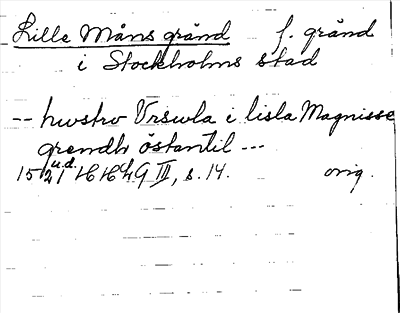 Lille Måns gränd f. gränd
i Stockholms stad
-- hwstrv Vrswla i lisla Magnisse
grendh östantil ---
1521 u.d. HH G II, s. 14. orig.